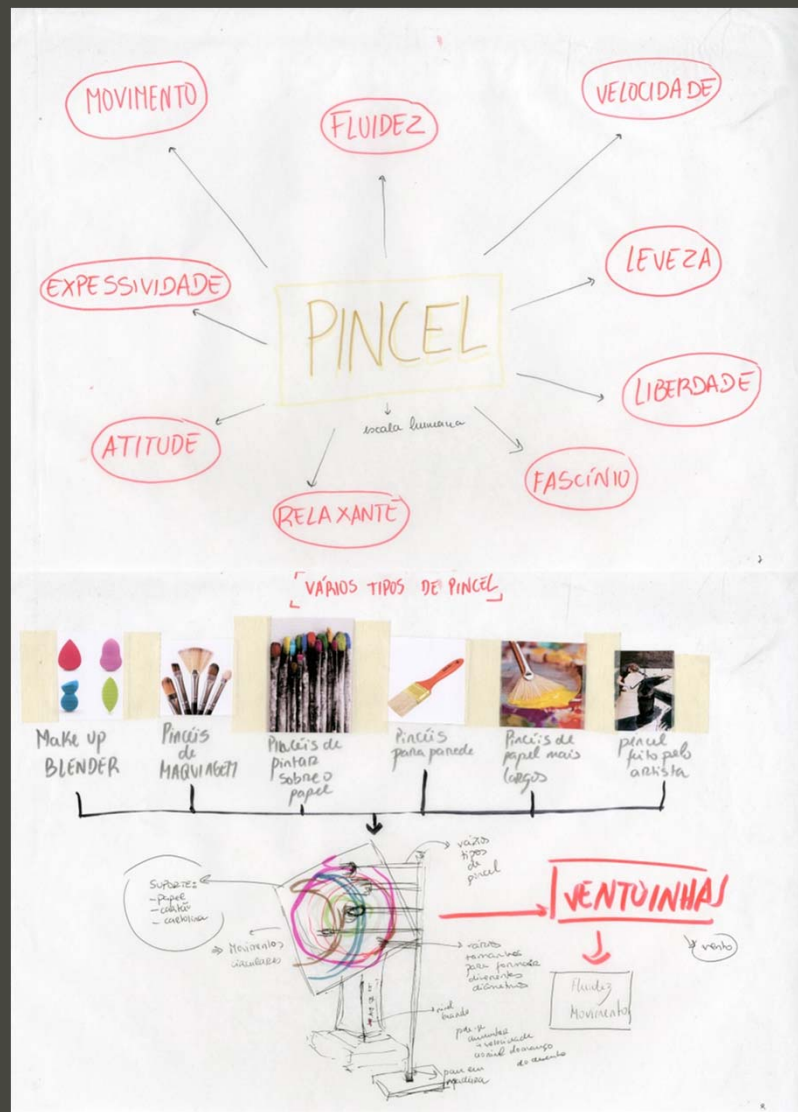 MOVIMENTO
FLUIDEZ
VELOCIDADE
EXPESSIVIDADE
LEVEZA
PINCEL
LIBERDADE
escala humana
ATITUDE
FASCÍNIO
RELAXANTE
VÁRIOS TIPOS DE PINCEL
Make up
BLENDER
Pincéis
de
MAQUIAGEM
Pincéis de
pintar
sobre o
papel
Pincéis
para parede
Pincéis de
papel mais
largos
pincel
feito pelo
artista
SUPORTE:
- papel
- cartão
- cartolina
Movimentos
circulares
vários
tipos
de
pincel
vários
tamanhos
para formar
diferentes
diâmetros
VENTOINHAS
vento
Fluidez
Movimento
velocidade